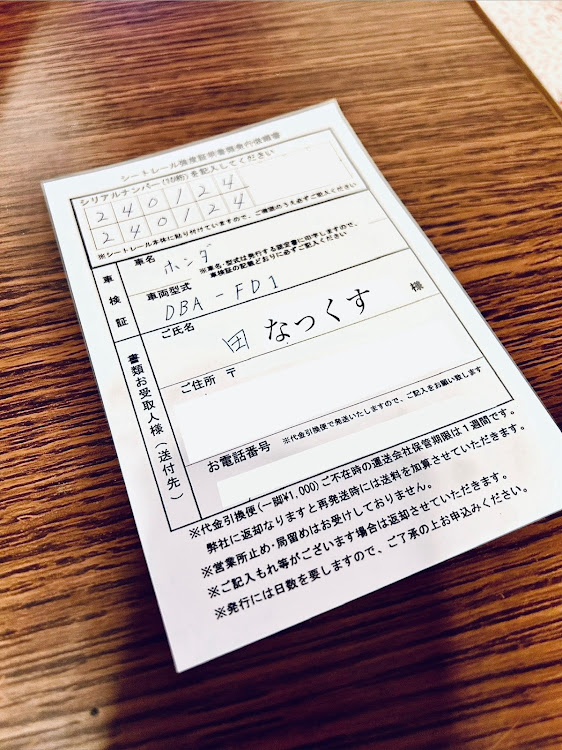 シートレール強度証明書類案内依頼書
シリアルナンバー(10桁)を記入してください
240124
240124
※シートレール本体に貼り付けていますので、ご確認のうえ必ずご記入ください
車検証
車名
ホンダ
※車名・型式は発行する認定書に印字しますので、
車検証の記載どおりに必ずご記入ください
車両型式
DBA-FD1
書類お受取人様(送付先)
ご氏名
田 なっくす 様
ご住所 〒
※代金引換便で発送いたしますので、ご記入をお願い致します
お電話番号
※代金引換便(一脚¥1,000)ご不在時の運送会社保管期限は1週間です。
弊社に返却なりますと再発送時には送料を加算させていただきます。
※営業所止め・局留めはお受けしておりません。
※ご記入もれ等がございます場合は返却させていただきます。
※発行には日数を要しますので、ご了承の上お申込みください。